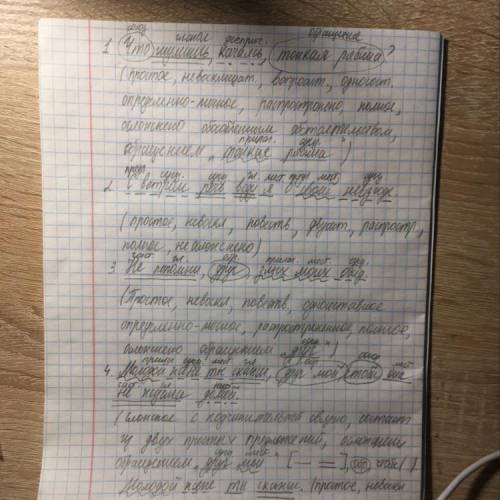 союз глагол дееприч. обращение
1. Что шумишь, качаясь, тонкая рябина?
(простое, невосклицат., вопросит., односост.
определённо-личное, распространено, полное,
осложнено обособленным обстоятельством,
прилаг. сущ.
обращением „тонкая рябина“)
2. С ветром речь веду я о своей невзгоде.
(простое, невоскл, повеств, двусост., распростр.,
полное, не осложнено)
3. Не помни, друг, злых моих обид.
(Простое, невоскл, повеств, односоставное
определённо-личное, распространённое, полное,
осложнено обращением „друг“)
4. Молодой жене ты скажи, друг мой, что
не ждёт домой.
(сложное с подчинительной связью, состоит
из двух простых предложений, осложнены
обращением „друг мой“ [— =], (что
Молодой жене ты скажи. (простое, невоскл